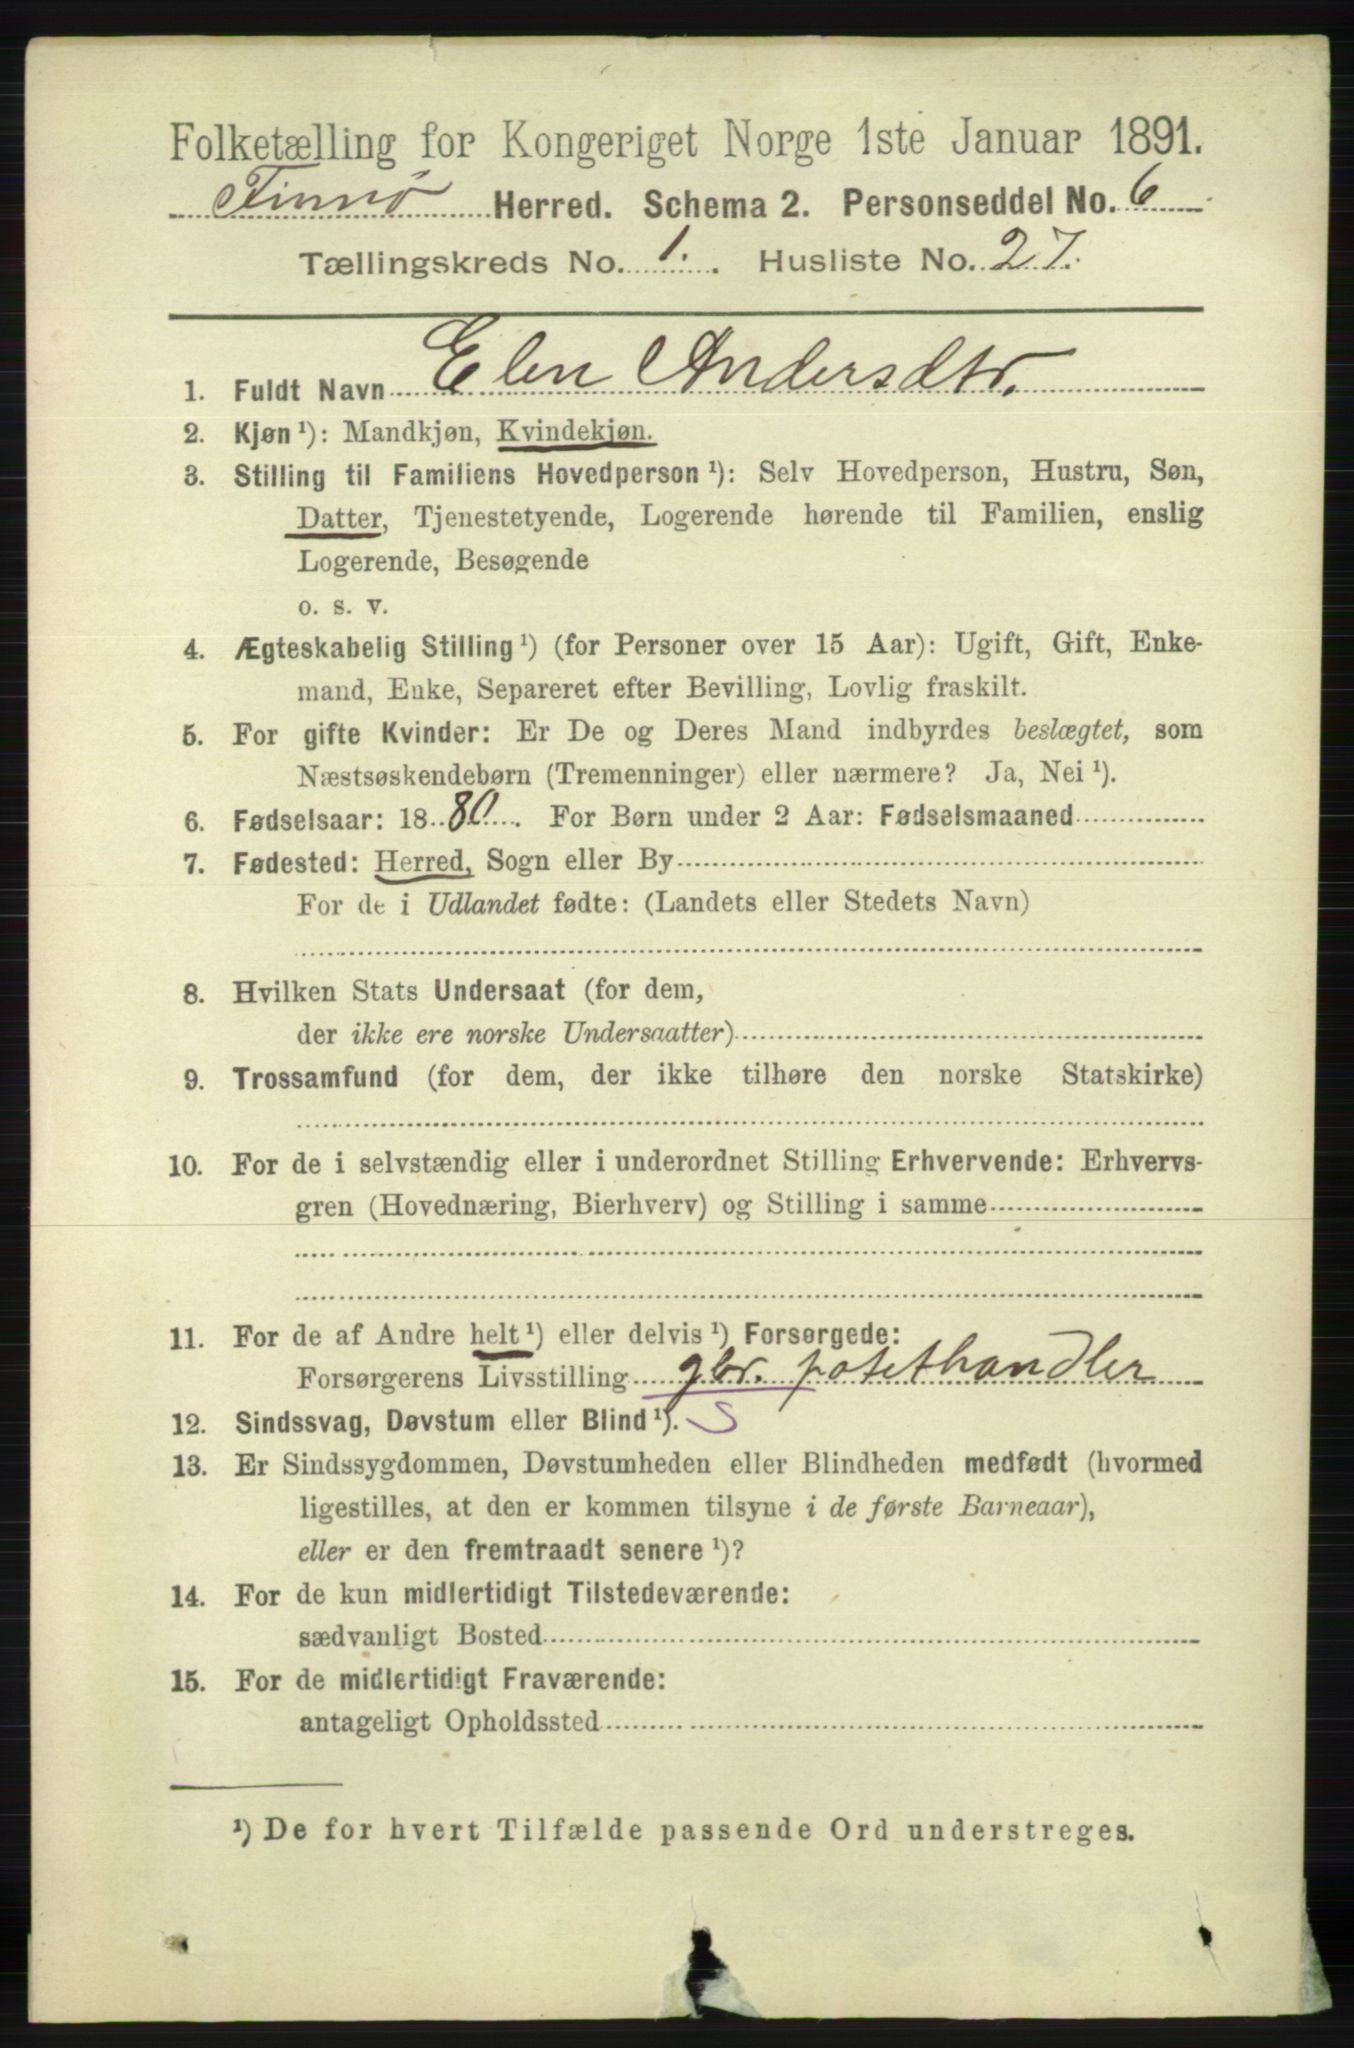 Folketælling for Kongeriget Norge 1ste Januar 1891.
Finnø Herred. Schema 2. Personseddel No. 6
Tællingskreds No. 1. Husliste No. 27.
1. Fuldt Navn Elen Andersdtr.
2. Kjøn ¹): Mandkjøn, Kvindekjøn.
3. Stilling til Familiens Hovedperson ¹): Selv Hovedperson, Hustru, Søn,
Datter, Tjenestetyende, Logerende hørende til Familien, enslig
Logerende, Besøgende
o. s. v.
4. Ægteskabelig Stilling ¹) (for Personer over 15 Aar): Ugift, Gift, Enke-
mand, Enke, Separeret efter Bevilling, Lovlig fraskilt.
5. For gifte Kvinder: Er De og Deres Mand indbyrdes beslægtet, som
Næstsøskendebørn (Tremenninger) eller nærmere? Ja, Nei ¹).
6. Fødselsaar: 1880. For Børn under 2 Aar: Fødselsmaaned
7. Fødested: Herred, Sogn eller By
For de i Udlandet fødte: (Landets eller Stedets Navn)
8. Hvilken Stats Undersaat (for dem,
der ikke ere norske Undersaatter)
9. Trossamfund (for dem, der ikke tilhøre den norske Statskirke)
10. For de i selvstændig eller i underordnet Stilling Erhvervende: Erhvervs-
gren (Hovednæring, Bierhverv) og Stilling i samme
11. For de af Andre helt ¹) eller delvis ¹) Forsørgede:
Forsørgerens Livsstilling gbr. potethandler
12. Sindssvag, Døvstum eller Blind ¹). S
13. Er Sindssygdommen, Døvstumheden eller Blindheden medfødt (hvormed
ligestilles, at den er kommen tilsyne i de første Barneaar),
eller er den fremtraadt senere ¹)?
14. For de kun midlertidigt Tilstedeværende:
sædvanligt Bosted
15. For de midlertidigt Fraværende:
antageligt Opholdssted
¹) De for hvert Tilfælde passende Ord understreges.